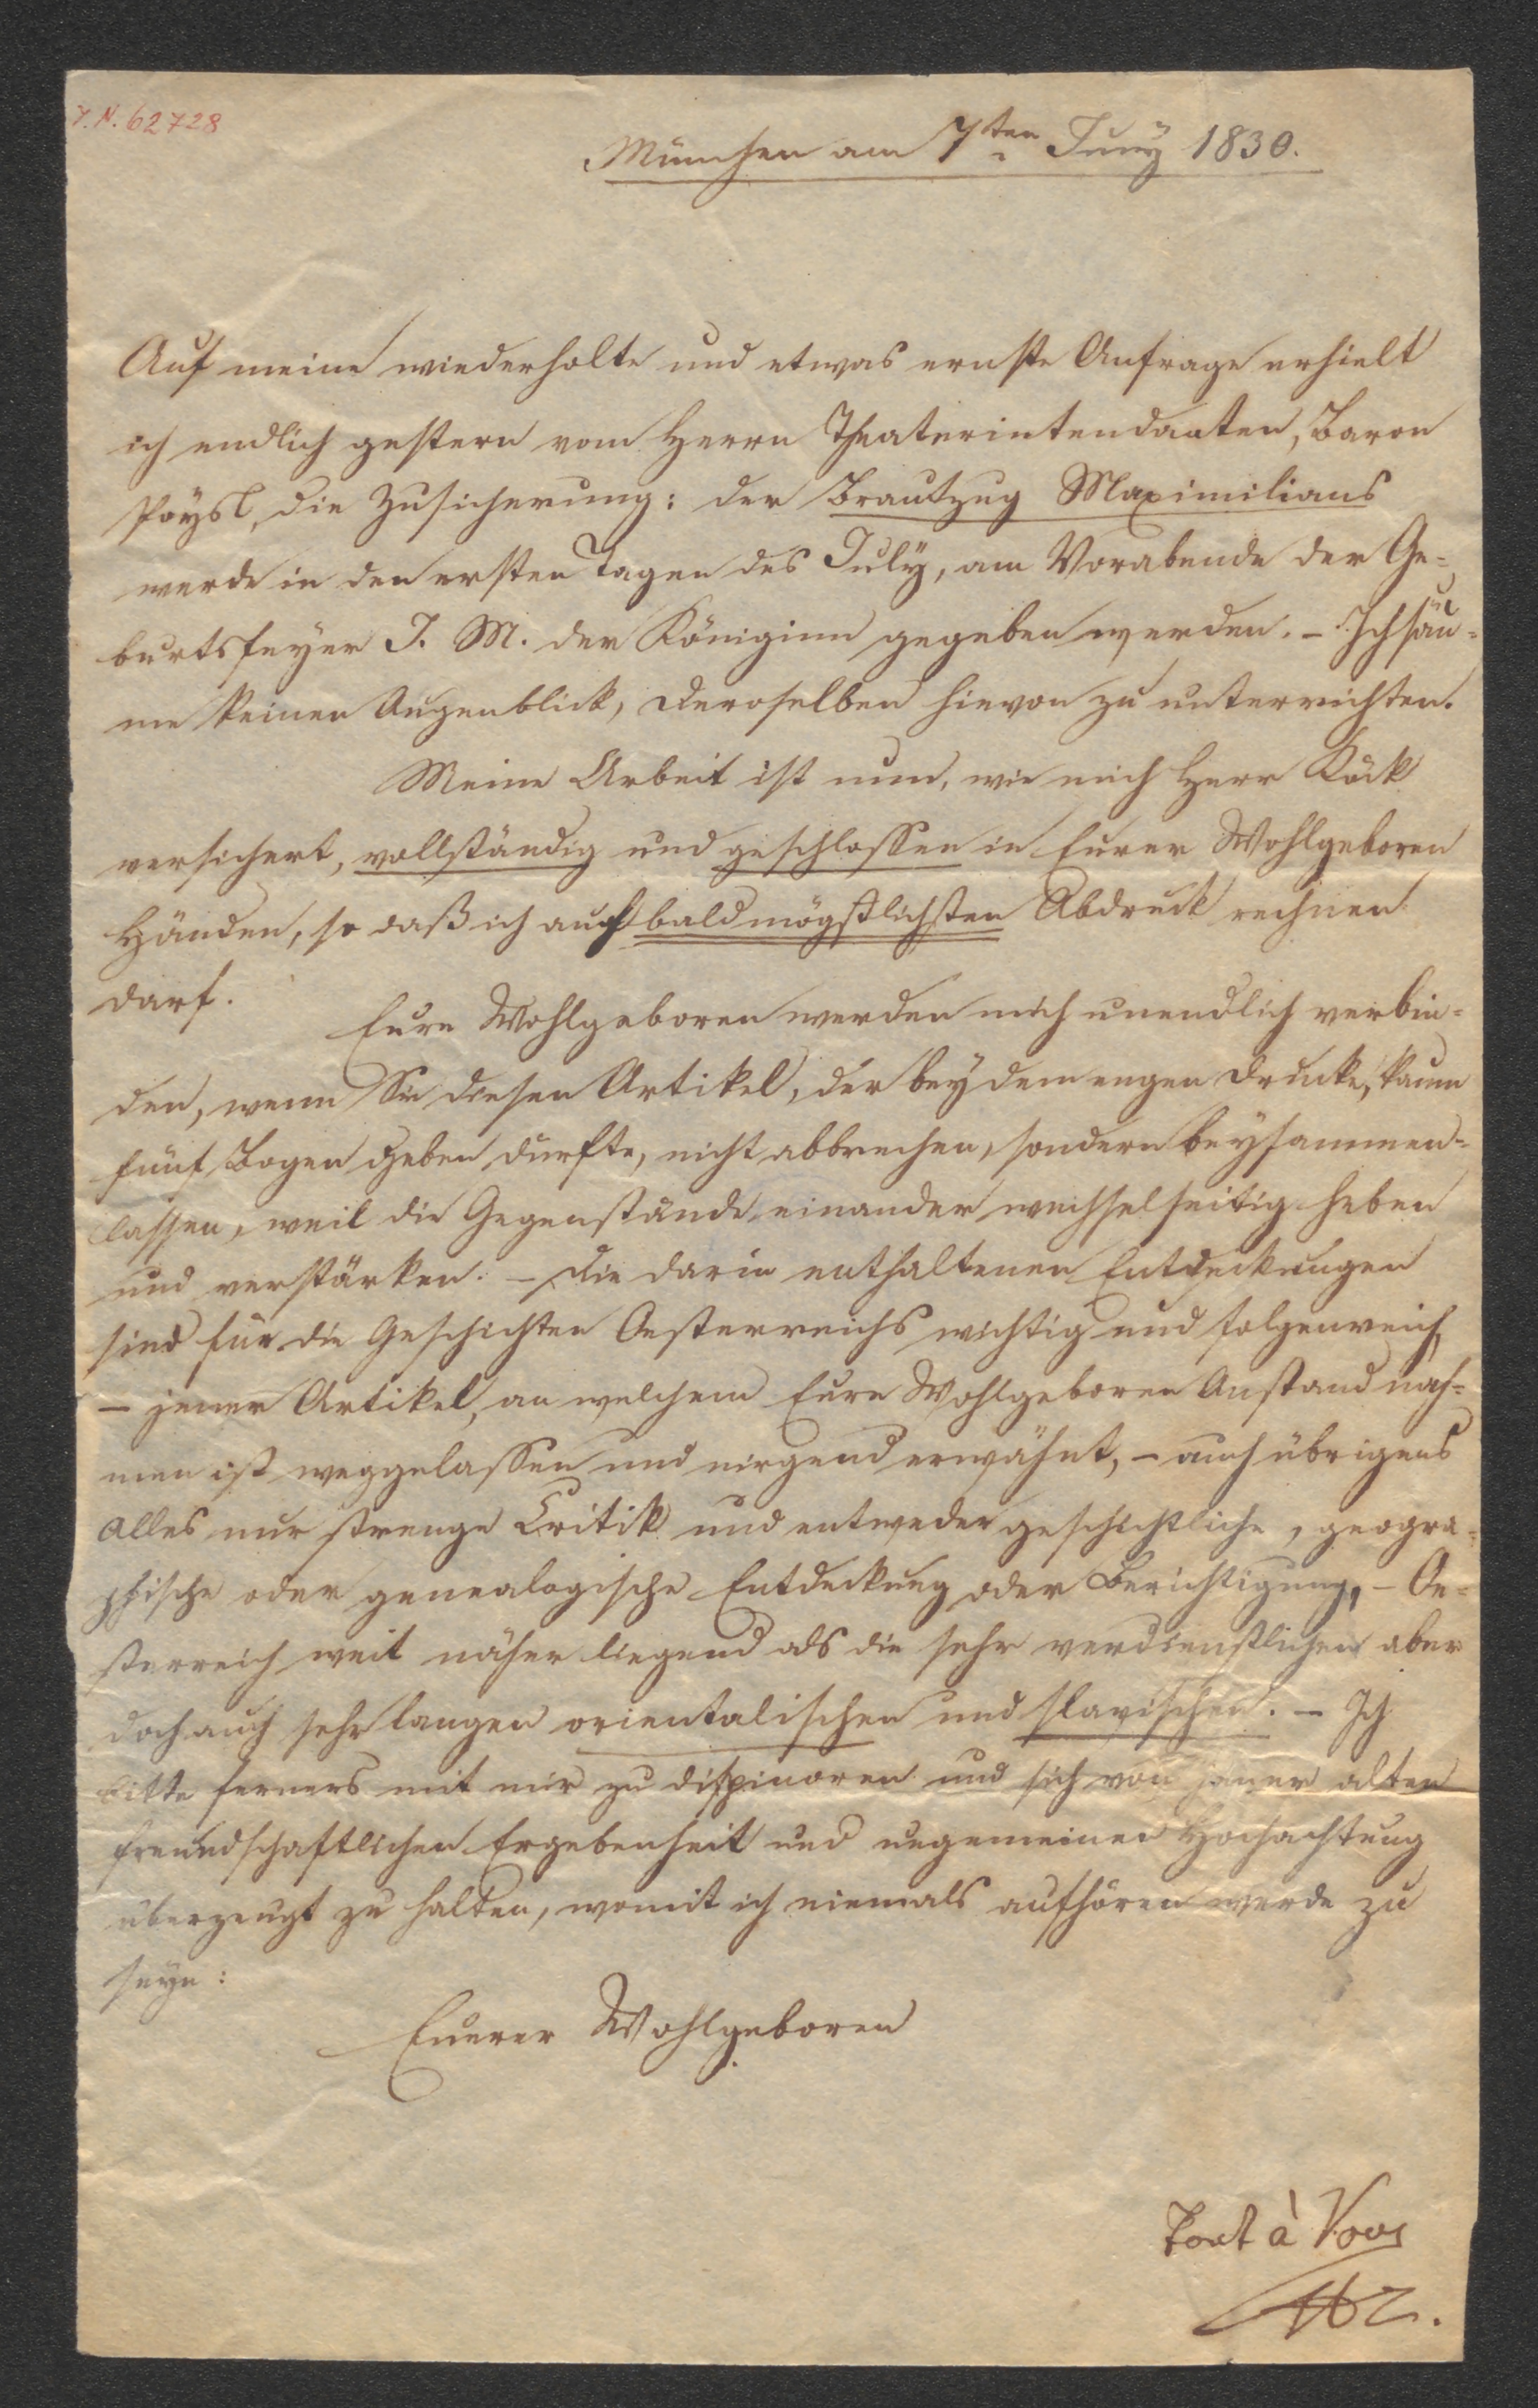 I. N. 62728
München am 7ten Juny 1830.
Auf meine wiederholte und etwas ernste Anfrage erhielt
ich endlich gestern vom Herrn Theaterintendanten, Baron
Poyßl, die Zusicherung: der Brautzug Maximilians
werde in den ersten Tagen des July, am Vorabende der Ge-
burtsfeyer I. M. der Königinn gegeben werden. – Ich säu-
me keinen Augenblick, Dieroselben hievon zu unterrichten.
Meine Arbeit ist nun, wie mich Herr Köck
versichert, vollständig und geschlossen in Eurer Wohlgeboren
Händen, so daß ich auf baldmögstlichsten Abdruck rechnen
darf.
Eure Wohlgeboren werden mich unendlich verbin-
den, wenn Sie diesen Artikel, der bey dem engen Drucke, kaum
fünf Bogen geben durfte, nicht abbrechen, sondern beysammen-
lassen, weil die Gegenstände einander wechselseitig heben
und verstärken. – Die darin enthaltenen Entdeckungen
sind für die Geschichten Oesterreichs wichtig und folgenreich,
– jener Artikel, an welchem Eure Wohlgeboren Anstand nah-
men ist weggelassen und nirgend erwähnt, – auch übrigens
alles nur strenge Critik und entweder geschichtliche, geogra-
phische oder genealogische Entdeckung oder Berichtigung, – Oe-
sterreich weit näher liegend als die sehr verdienstlichen aber
doch auch sehr langen orientalischen und slavischen. – Ich
bitte ferners mit mir zu disponiren und sich von jener alten
freundschaftlichen Ergebenheit und ungemeinen Hochachtung
überzeugt zu halten, womit ich niemals aufhören werde zu
seyn:
Euerer Wohlgeboren
Tout à Vous
Hz.